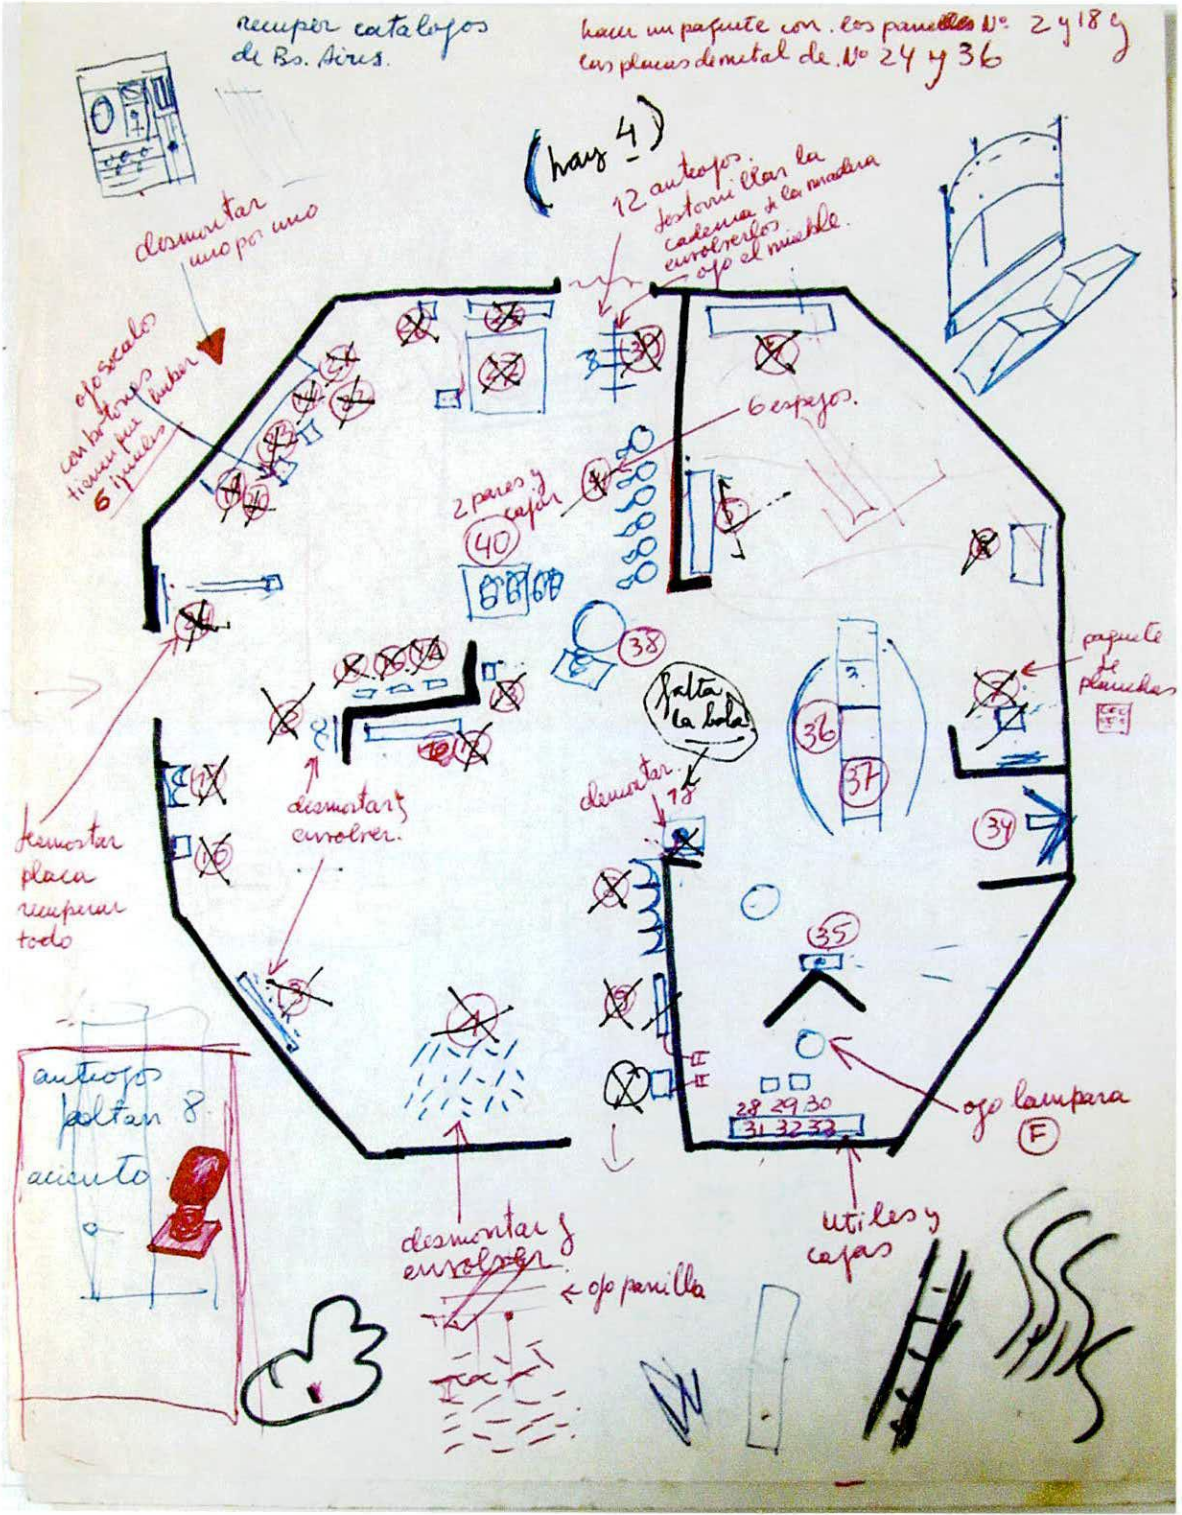 recuper catalogos
de Bs. Aires.
hacer un paquete con los paneles Nº 2 y 18 y
las placas de metal de Nº 24 y 36
(hay 4)
12 anteojos.
destornillar la
cadena de la madera
envolverlos
ojo el mueble.
desmontar
uno por uno
ojo socalos
con botones
tienen que haber
6 iguales
6 espejos.
2 pares y
cajón
40
38
falta
la bola
36
37
paquete
de planchas
34
35
desmontar
desmontar y
envolver.
desmontar
placa
recuperar
todo
8
3
1
28 29 30
31 32 33
ojo lampara
F
anteojos
faltan 8
aciento
desmontar y
envolver
ojo parrilla
utiles y
cajas